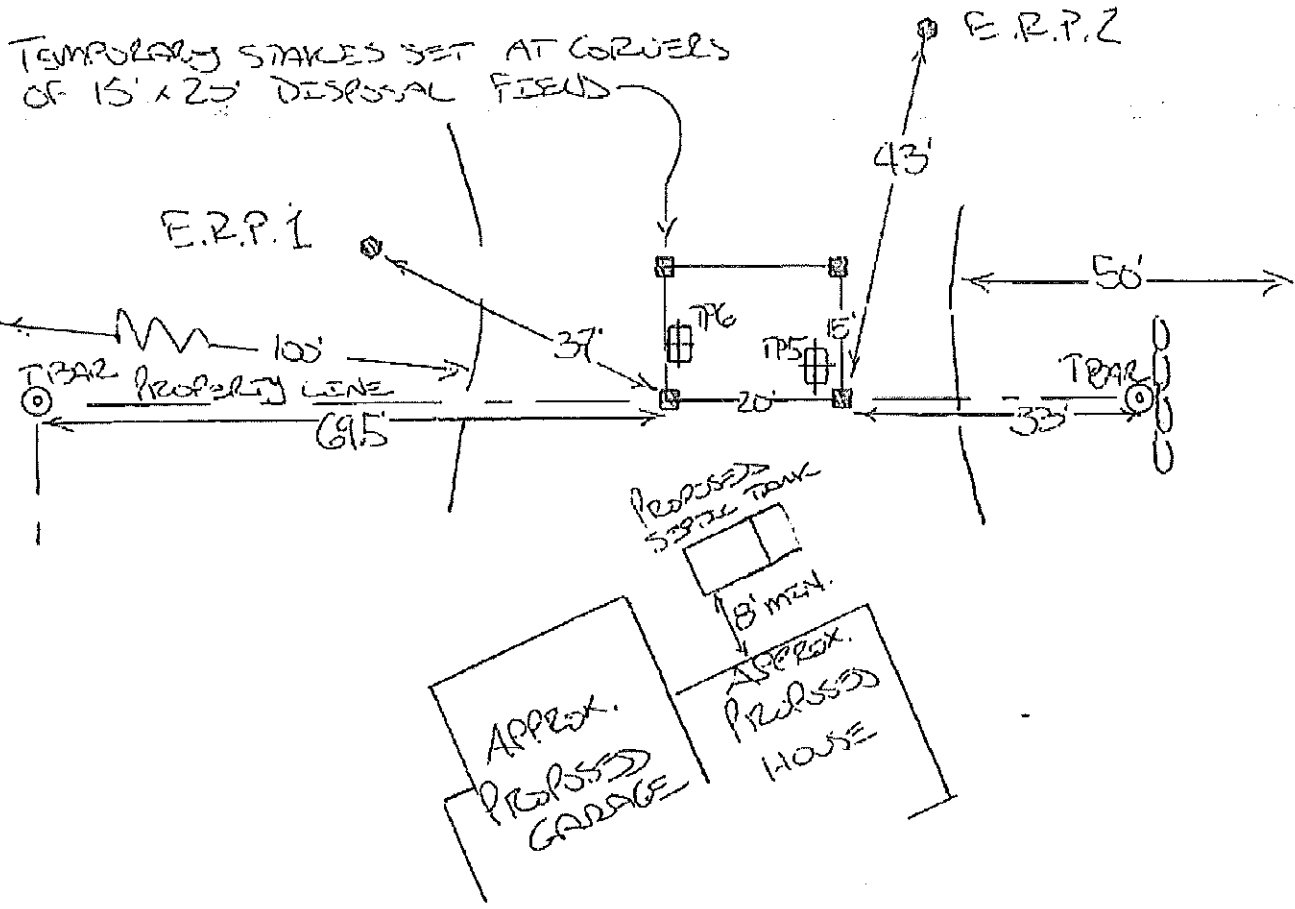 TEMPORARY STAKES SET AT CORNERS
OF 15' x 20' DISPOSAL FIELD
E.R.P.2
43'
E.R.P.1
50'
TP6
15'
TP5
37'
100'
TBAR
PROPERTY LINE
TBAR
20'
69.5'
33'
PROPOSED
SEPTIC TANK
8' MIN.
APPROX.
PROPOSED
HOUSE
APPROX.
PROPOSED
GARAGE